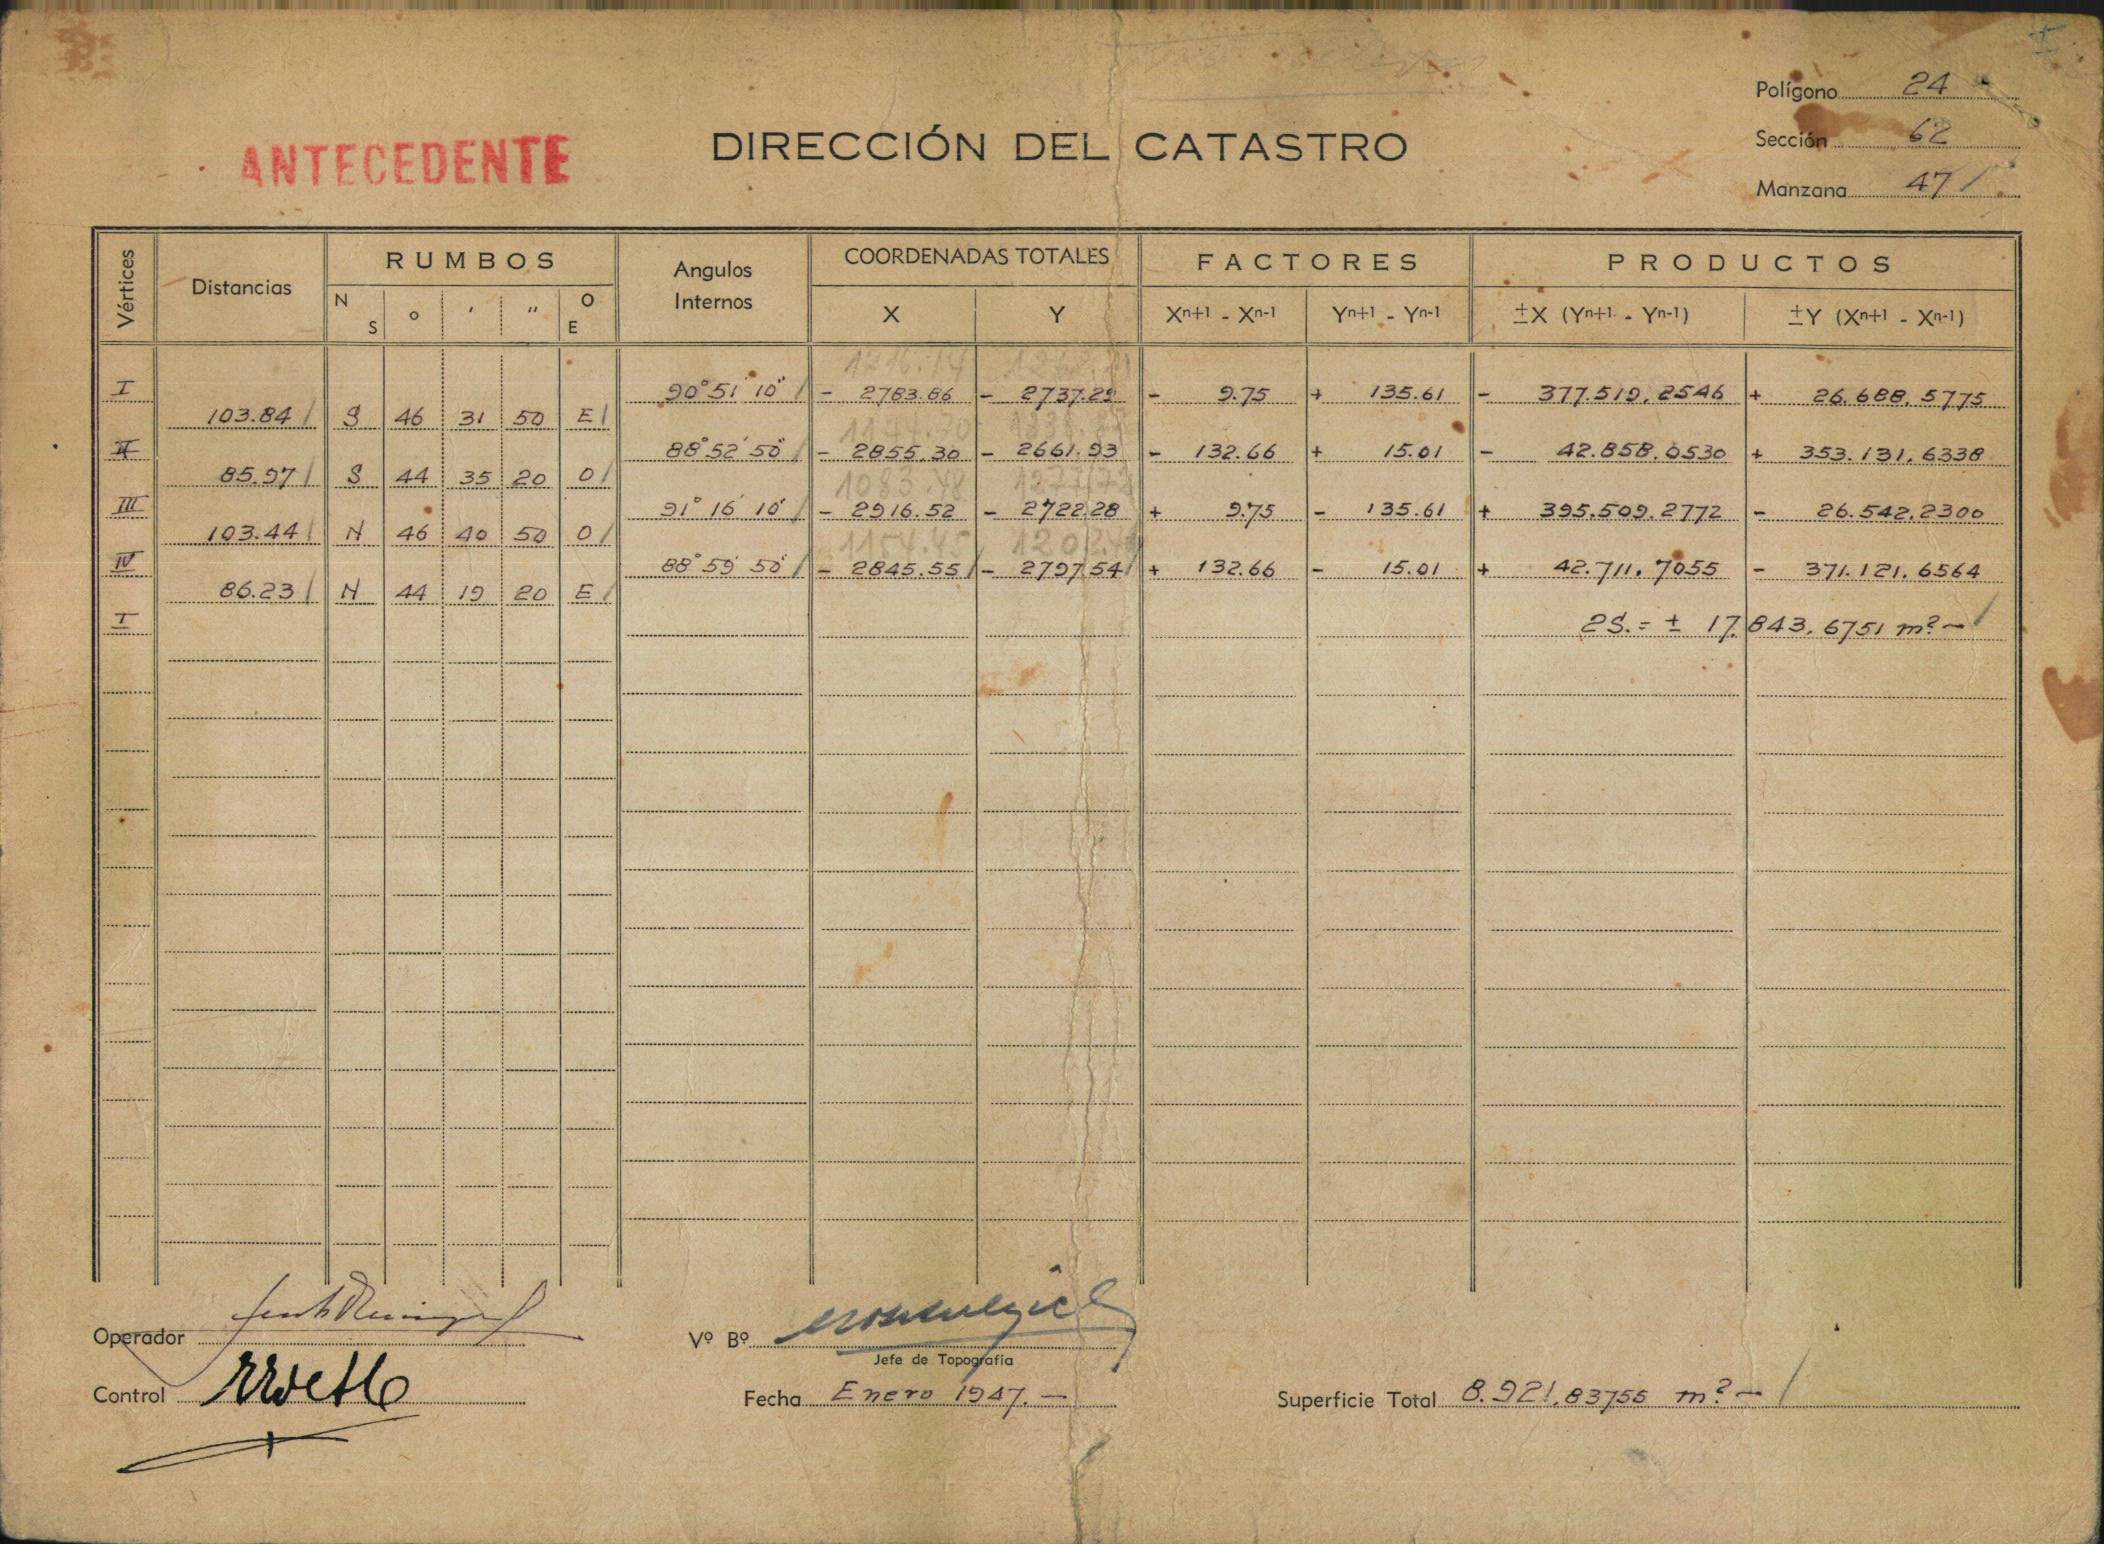 Polígono 24
ANTECEDENTE DIRECCIÓN DEL CATASTRO Sección 62
Manzana 47 /
Vértices Distancias RUMBOS Angulos Internos COORDENADAS TOTALES FACTORES PRODUCTOS
N S ° ' " O E X Y Xn+1 - Xn-1 Yn+1 - Yn-1 ±X (Yn+1 - Yn-1) ±Y (Xn+1 - Xn-1)
I 90° 51' 10" / - 2783.86 - 2737.29 - 9.75 + 135.61 - 377.519.2546 + 26.688.5775
103.84 / S 46 31 50 E /
II 88° 52' 50" / - 2855.30 - 2661.93 - 132.66 + 15.01 - 42.858.0530 + 353.131.6338
85.97 / S 44 35 20 O /
III 91° 16' 10" / - 2916.52 - 2722.28 + 9.75 - 135.61 + 395.509.2772 - 26.542.2300
103.44 / N 46 40 50 O /
IV 88° 59' 50" / - 2845.55 / - 2797.54 / + 132.66 - 15.01 + 42.711.7055 - 371.121.6564
86.23 / N 44 19 20 E /
I 2S. = ± 17.843.6751 m² - /
Operador Vº Bº
Jefe de Topografía
Control Fecha Enero 1947. - Superficie Total 8.921.83755 m² - /